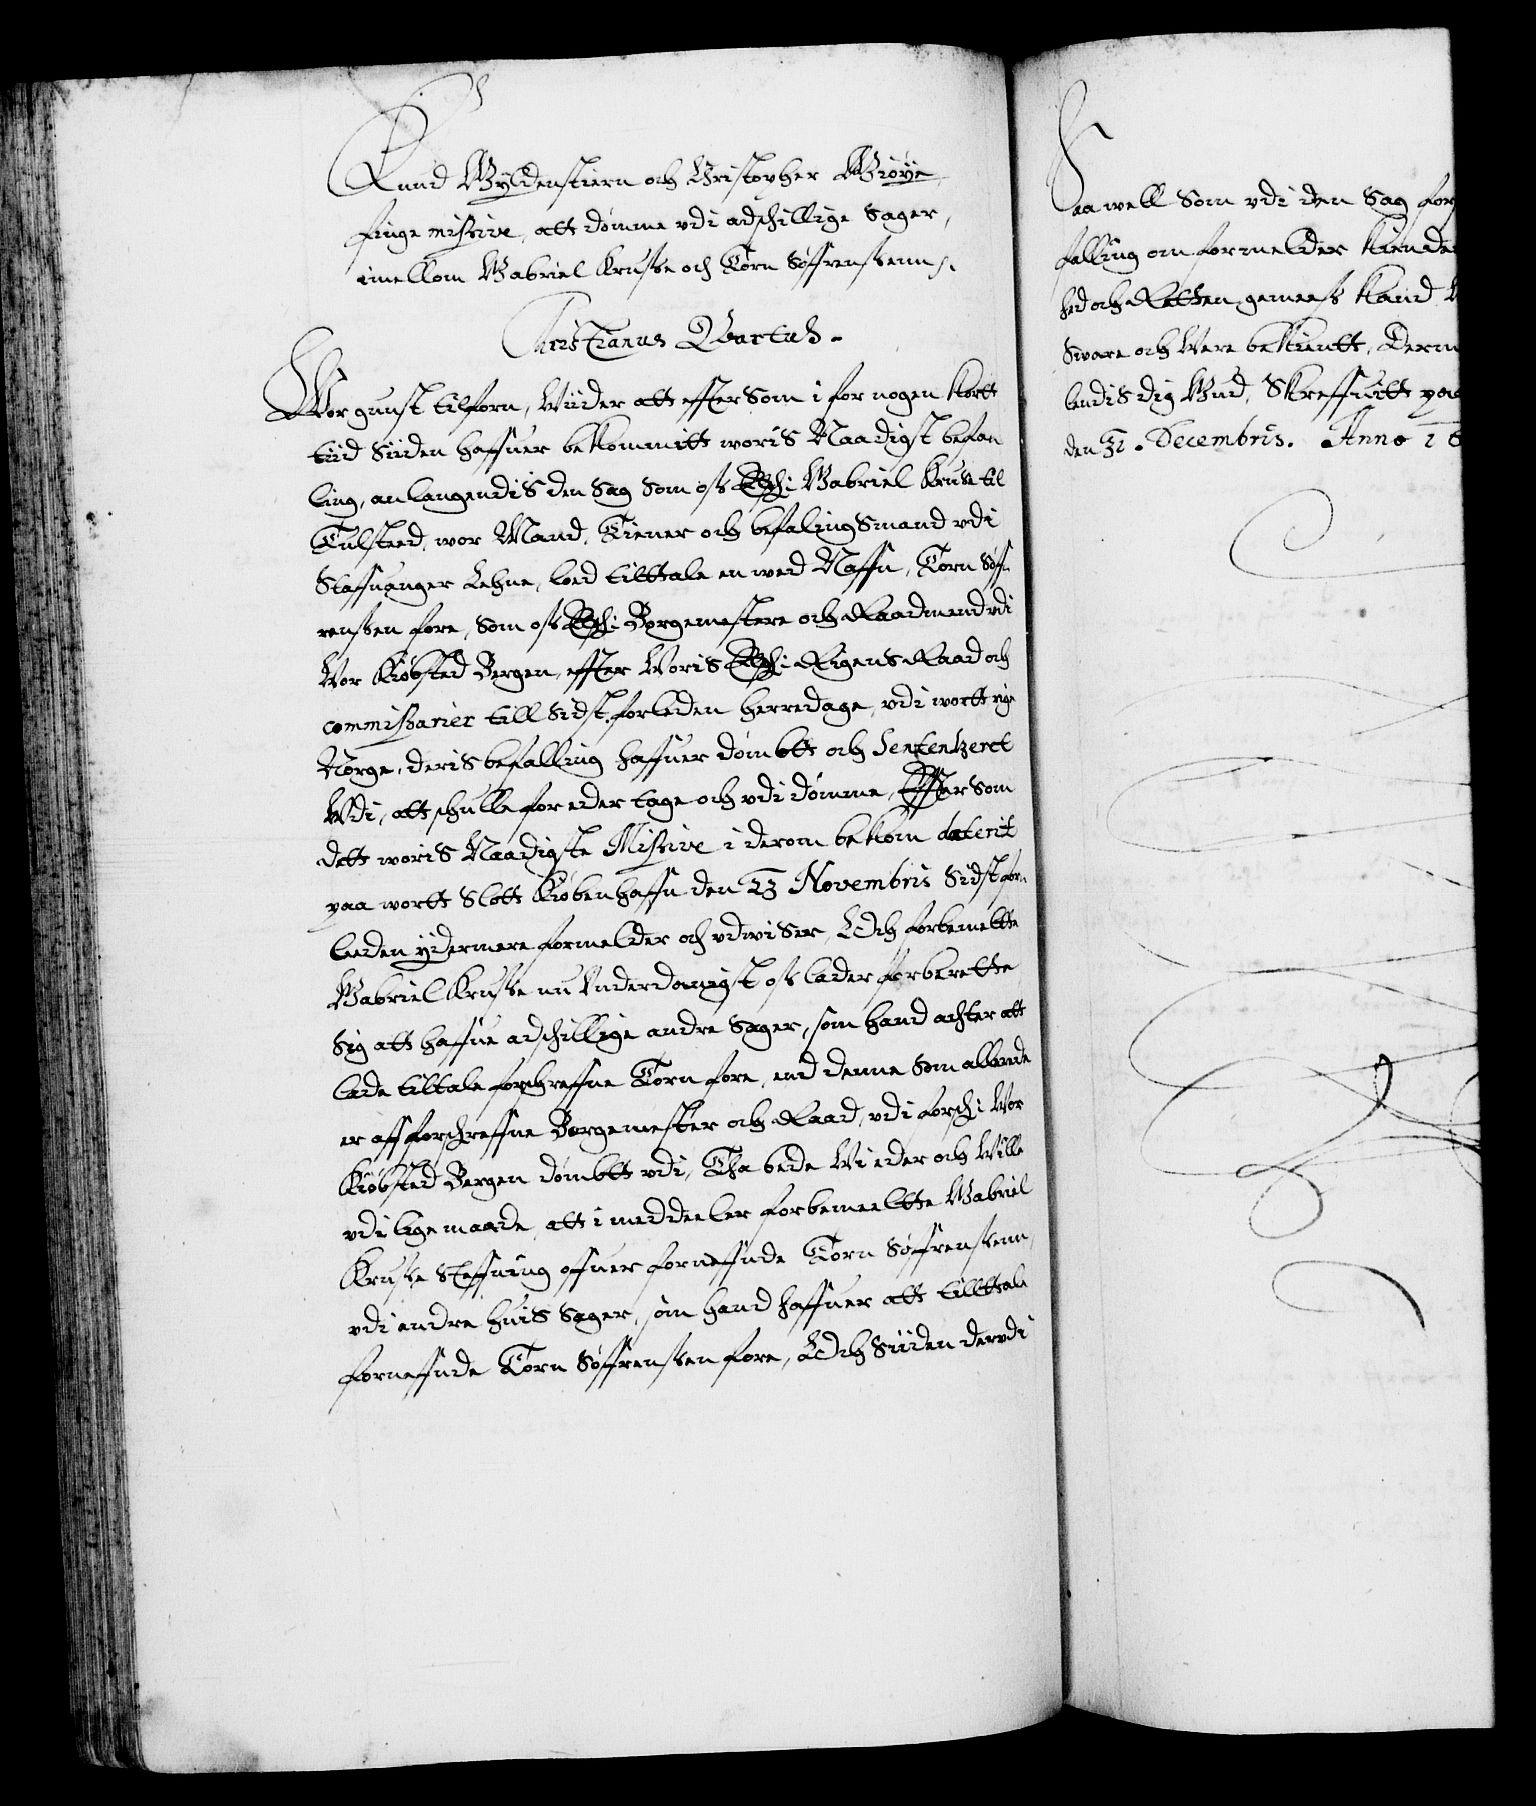 Knud Gyldenstiern och Christopher Giøye,
finge missive, att dømme vdi adschillige Sager,
imellom Gabriel Krusse och Torn Søffrenssenn.
Christianus Quartus.
Wor gunst tilforn, Wiider att efftersom i for nogen kortt
tiid siiden haffuer bekommitt woris Naadigst befa
ling, anlangendis den Sag som oss Elsch: Gabriel Kruse til
Tulsteed, wor Mand, Tiener och befalingsmand vdi
Staffuanger Lehne, loed tilttale en wed Naffn, Torn Søff
rensen fore, som oss Elsch: Borgemestere och Raadmend vdi
Wor Kiøbsted Bergen, effter Woris Elsch: Rigens Raad och
commissarier till sidst forleden herredage, vdi wortt rige
Norge, deris befalling haffuer dømbtt och sententzeret
Vdi, att schulle for eder tage och vdi dømme, Effter som
dett woris Naadigste Missive i derom bekom daterit
paa wortt Slott Kiøbenhaffn den 23 Novembris sidst for
leeden ydermere formelder och vdwiser, Och forbemeltte
Gabriel Krusse nu Vnderdanigst oss lader forberette
sig att haffue adschillige andre Sager, som hand achter att
lade tiltale forschreffne Torn fore, end denne som allerede
er aff forschreffne Borgemester och Raad, vdi forsch: Wor
Kiøbsted Bergen dømbtt vdi, Tha bede Wi eder och Wille
vdi lige maade, att i meddeeler forbemeeltte Gabriel
Krusse Steffning offuer forneffnde Torn Søffrenssenn,
vdi andre huis Sager, som hand haffuer att tillttale
forneffnde Torn Søffrenssen fore, Och siiden dervdi
Saa well som vdi den Sag for
falling om formelder kiende
hed och Retten gemeess kand
Sware och Were bekiuntt, Derm
lendis dig Gud, Skreffuitt paa
den 31. Decembris. Anno 16